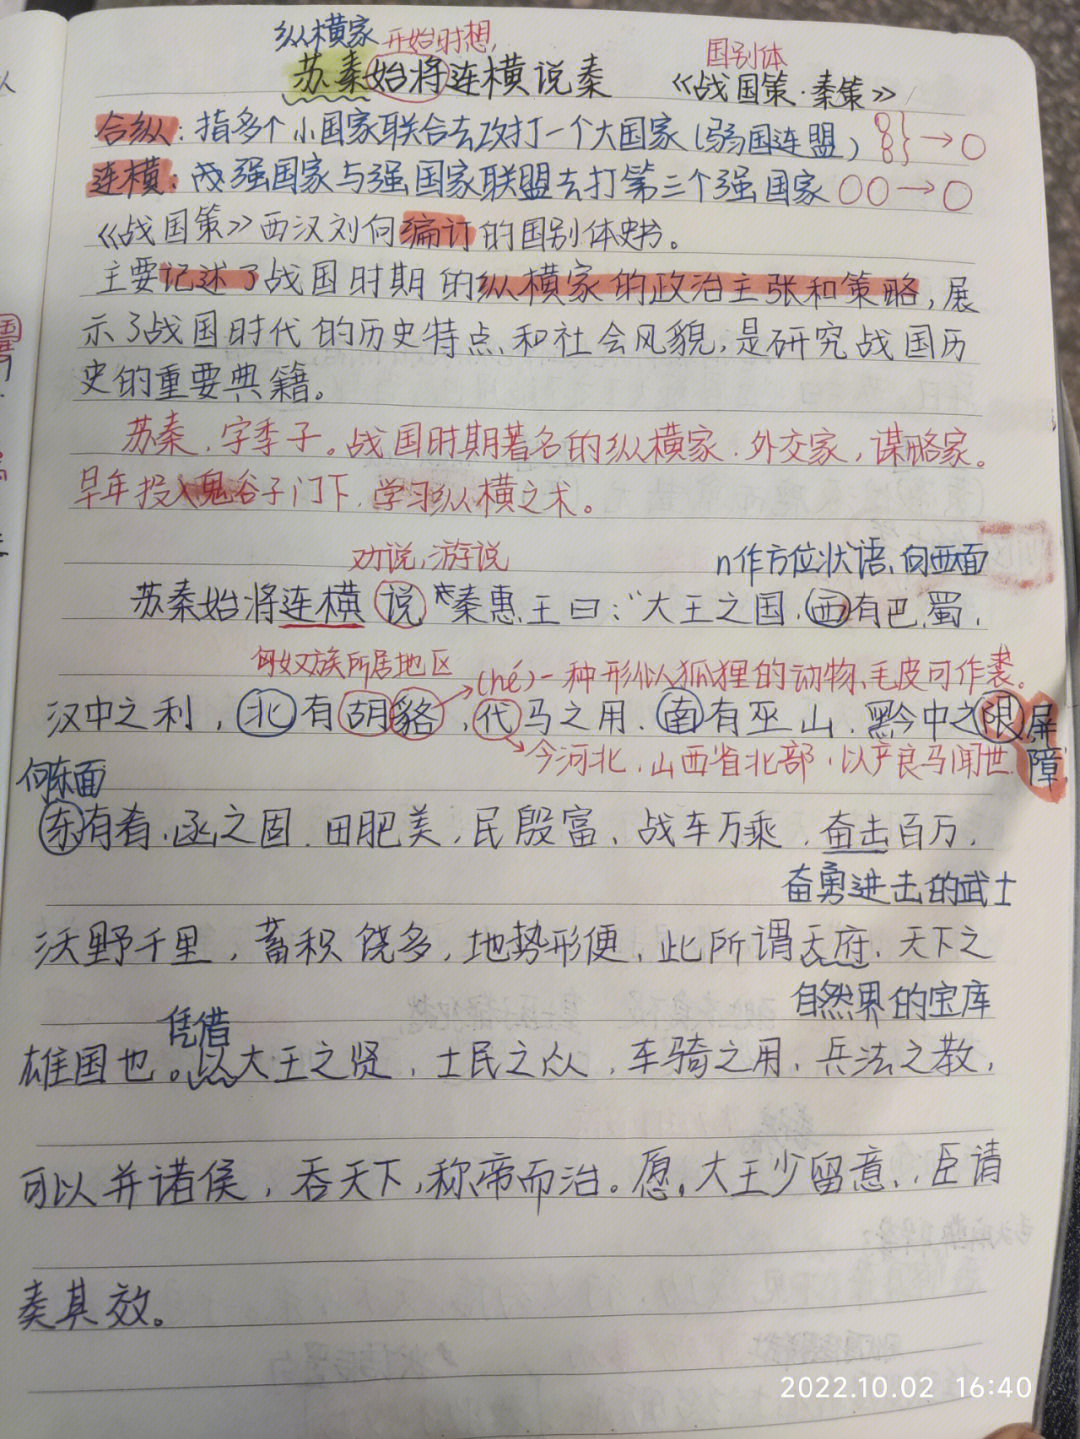 纵横家 开始时想,
国别体
苏秦始将连横说秦 《战国策·秦策》
合纵：指多个小国家联合去攻打一个大国家(弱国连盟) 8}→○
连横：强国家与强国家联盟去打第三个强国家○○→○
《战国策》西汉刘向编订的国别体史书。
主要记述了战国时期的纵横家的政治主张和策略，展
示了战国时代的历史特点和社会风貌，是研究战国历
史的重要典籍。
苏秦，字季子。战国时期著名的纵横家．外交家，谋略家。
早年投入鬼谷子门下，学习纵横之术。
劝说，游说 n作方位状语，向西面
苏秦始将连横说秦惠王曰：“大王之国，西有巴、蜀，
匈奴族所居地区 (hé)一种形似狐狸的动物，毛皮可作裘。
汉中之利，北有胡貉，代马之用．南有巫山．黔中之限 屏障
今河北，山西省北部，以产良马闻世
向东面
东有肴，函之固．田肥美，民殷富，战车万乘，奋击百万，
奋勇进击的武士
沃野千里，蓄积饶多，地势形便，此所谓天府，天下之
自然界的宝库
凭借
雄国也。以大王之贤，士民之众，车骑之用，兵法之教，
可以并诸侯，吞天下，称帝而治。愿，大王少留意，臣请
奏其效。
2022.10.02 16:40